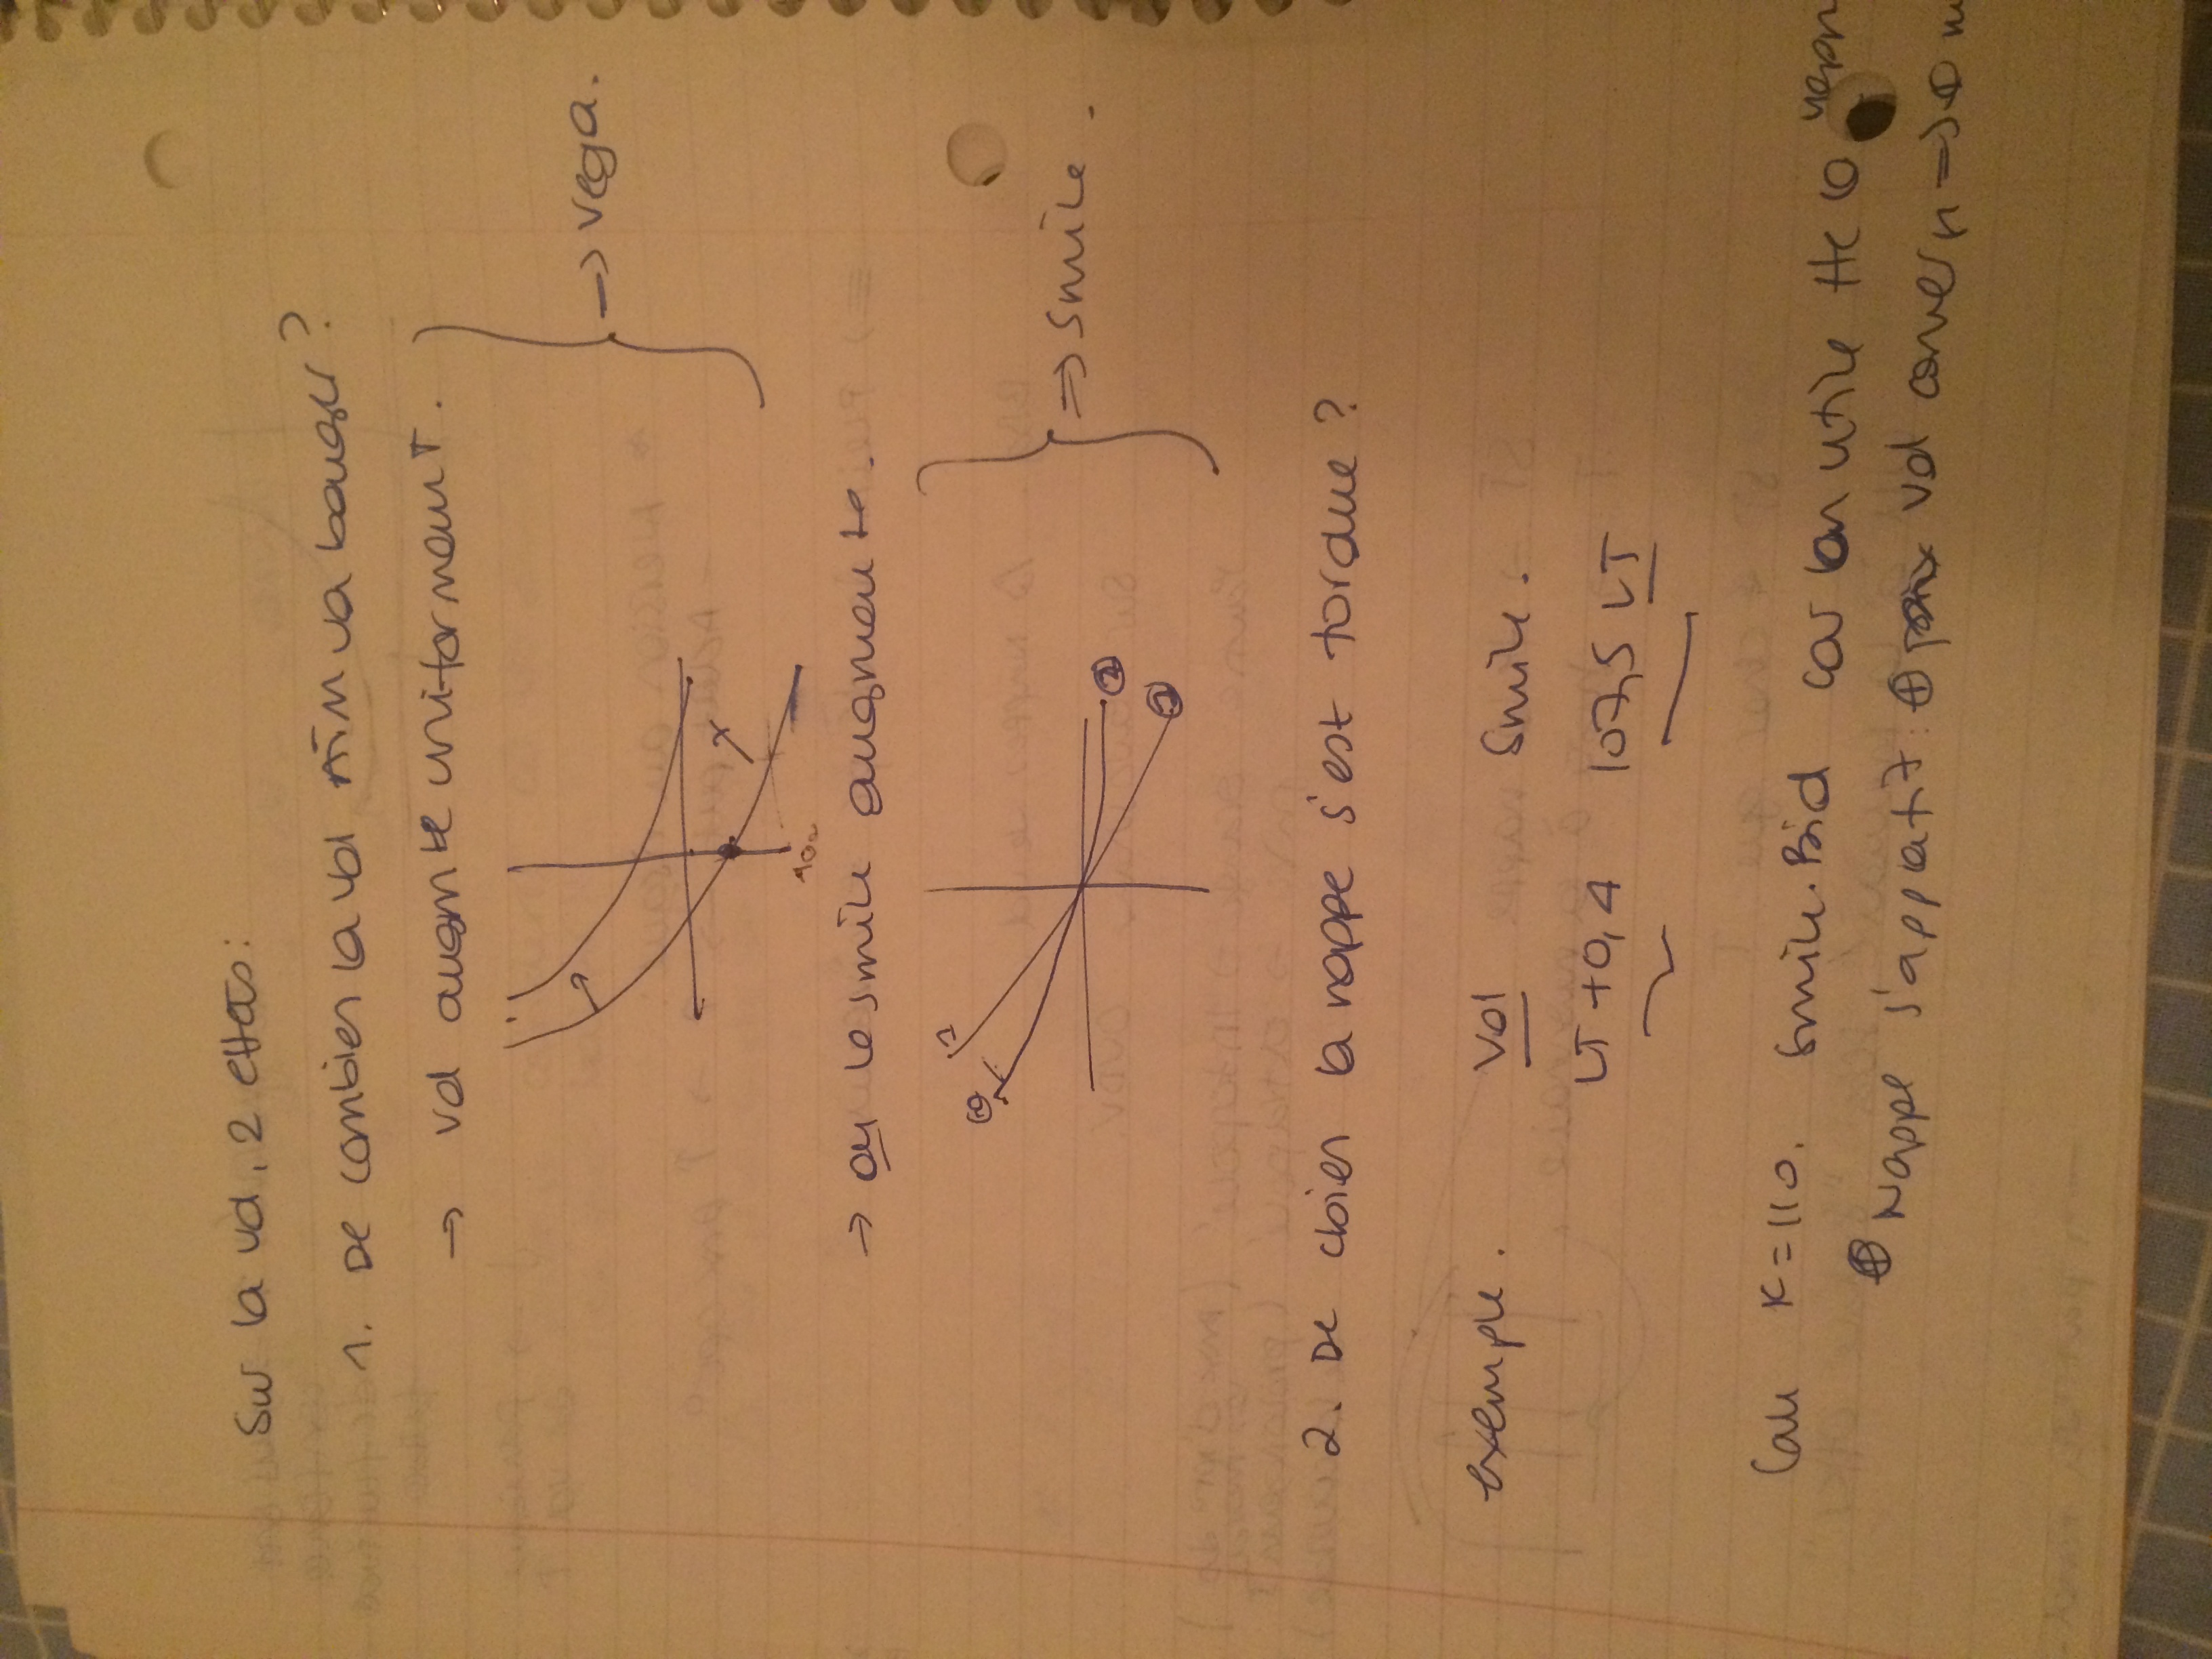 Sur la vol, 2 effets:
1. De combien la vol ATM va bouger?
→ vol augmte uniformémt.
→ vega.
100
→ ou le smile augmente.
1
②
②
①
⇒ smile.
2. De cbien la nappe s'est tordue?
exemple. Vol Smile.
LT +0,4 107,5 LT
Call K=110. Smile Bid car on utilise tte la
⊕ Nappe s'applatit ⊕ vol